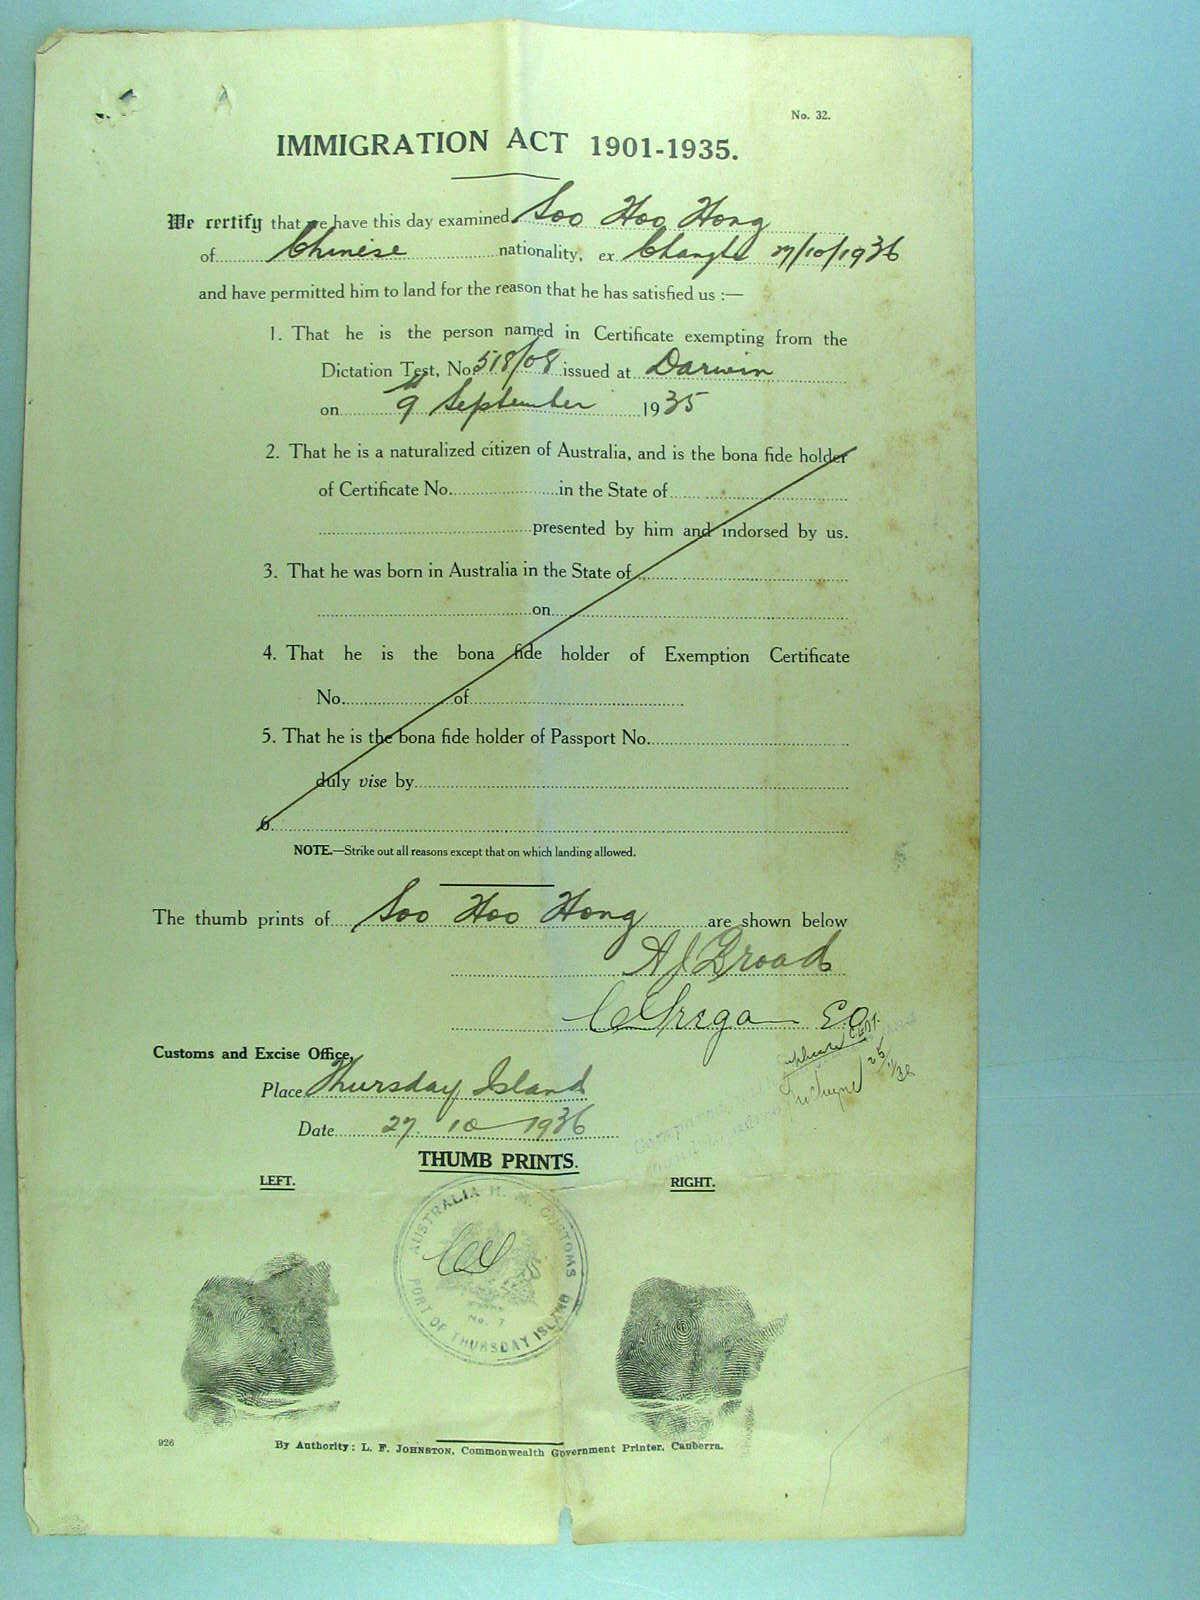 No. 32.
IMMIGRATION ACT 1901-1935.
We certify that we have this day examined Soo Hoo Hong
of Chinese nationality, ex Changte 27/10/1936
and have permitted him to land for the reason that he has satisfied us :—
1. That he is the person named in Certificate exempting from the
Dictation Test, No. 518/08 issued at Darwin
on 9th September 1935
2. That he is a naturalized citizen of Australia, and is the bona fide holder
of Certificate No. in the State of
presented by him and indorsed by us.
3. That he was born in Australia in the State of
on
4. That he is the bona fide holder of Exemption Certificate
No. of
5. That he is the bona fide holder of Passport No.
duly vise by
6.
NOTE.—Strike out all reasons except that on which landing allowed.
The thumb prints of Soo Hoo Hong are shown below
A J Broad
Customs and Excise Office,
Place Thursday Island
Date 27 10 1936
THUMB PRINTS.
LEFT. RIGHT.
AUSTRALIA H. M. CUSTOMS
No. 7
PORT OF THURSDAY ISLAND
926
By Authority: L. F. JOHNSTON, Commonwealth Government Printer, Canberra.